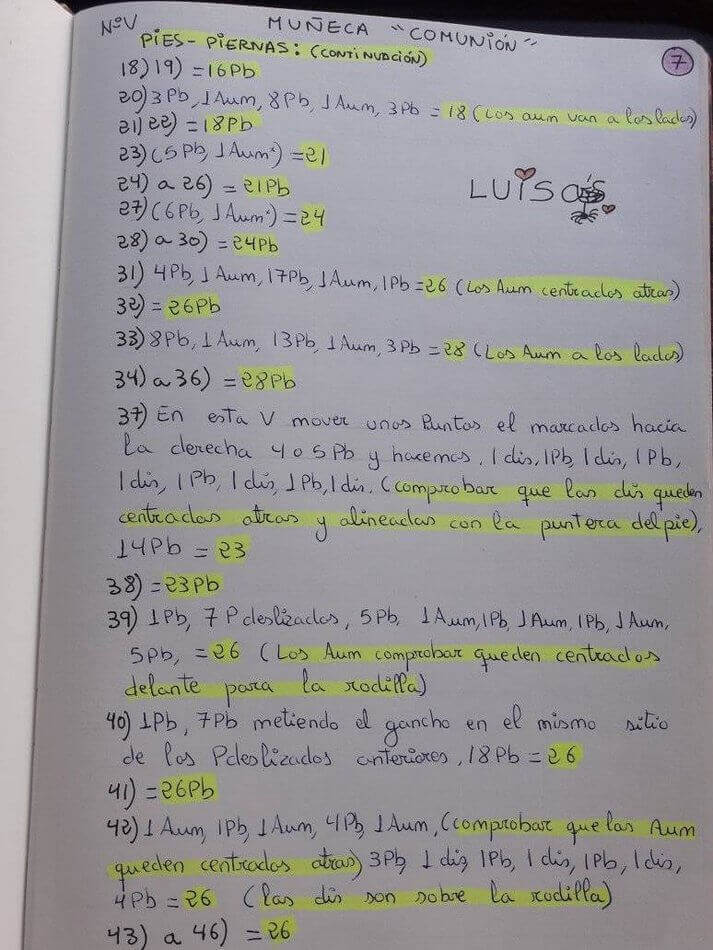 NºV MUÑECA "COMUNIÓN"
PIES-PIERNAS: (CONTINUACIÓN) 7
18) 19) = 16Pb
20) 3Pb, 1Aum, 8Pb, 1Aum, 3Pb = 18 (Los aum van a los lados)
21) 22) = 18Pb
23) (5Pb, 1Aum") = 21
24) a 26) = 21Pb
LUISA's
27) (6Pb, 1Aum") = 24
28) a 30) = 24Pb
31) 4Pb, 1Aum, 17Pb, 1Aum, 1Pb = 26 (Los Aum centrados atras)
32) = 26Pb
33) 8Pb, 1Aum, 13Pb, 1Aum, 3Pb = 28 (Los Aum a los lados)
34) a 36) = 28Pb
37) En esta V mover unos Puntos el marcados hacia
la derecha 4 o 5Pb y hacemos. 1dis, 1Pb, 1dis, 1Pb,
1dis, 1Pb, 1dis, 1Pb, 1dis. (comprobar que las dis queden
centradas atras y alineadas con la puntera del pie),
14Pb = 23
38) = 23Pb
39) 1Pb, 7 Pdeslizados, 5Pb, 1Aum, 1Pb, 1Aum, 1Pb, 1Aum,
5Pb, = 26 (Los Aum comprobar queden centrados
delante para la rodilla)
40) 1Pb, 7Pb metiendo el gancho en el mismo sitio
de los Pdeslizados anteriores, 18Pb = 26
41) = 26Pb
42) 1Aum, 1Pb, 1Aum, 4Pb, 1Aum, (comprobar que las Aum
queden centrados atras) 3Pb, 1dis, 1Pb, 1dis, 1Pb, 1dis,
4Pb = 26 (las dis son sobre la rodilla)
43) a 46) = 26